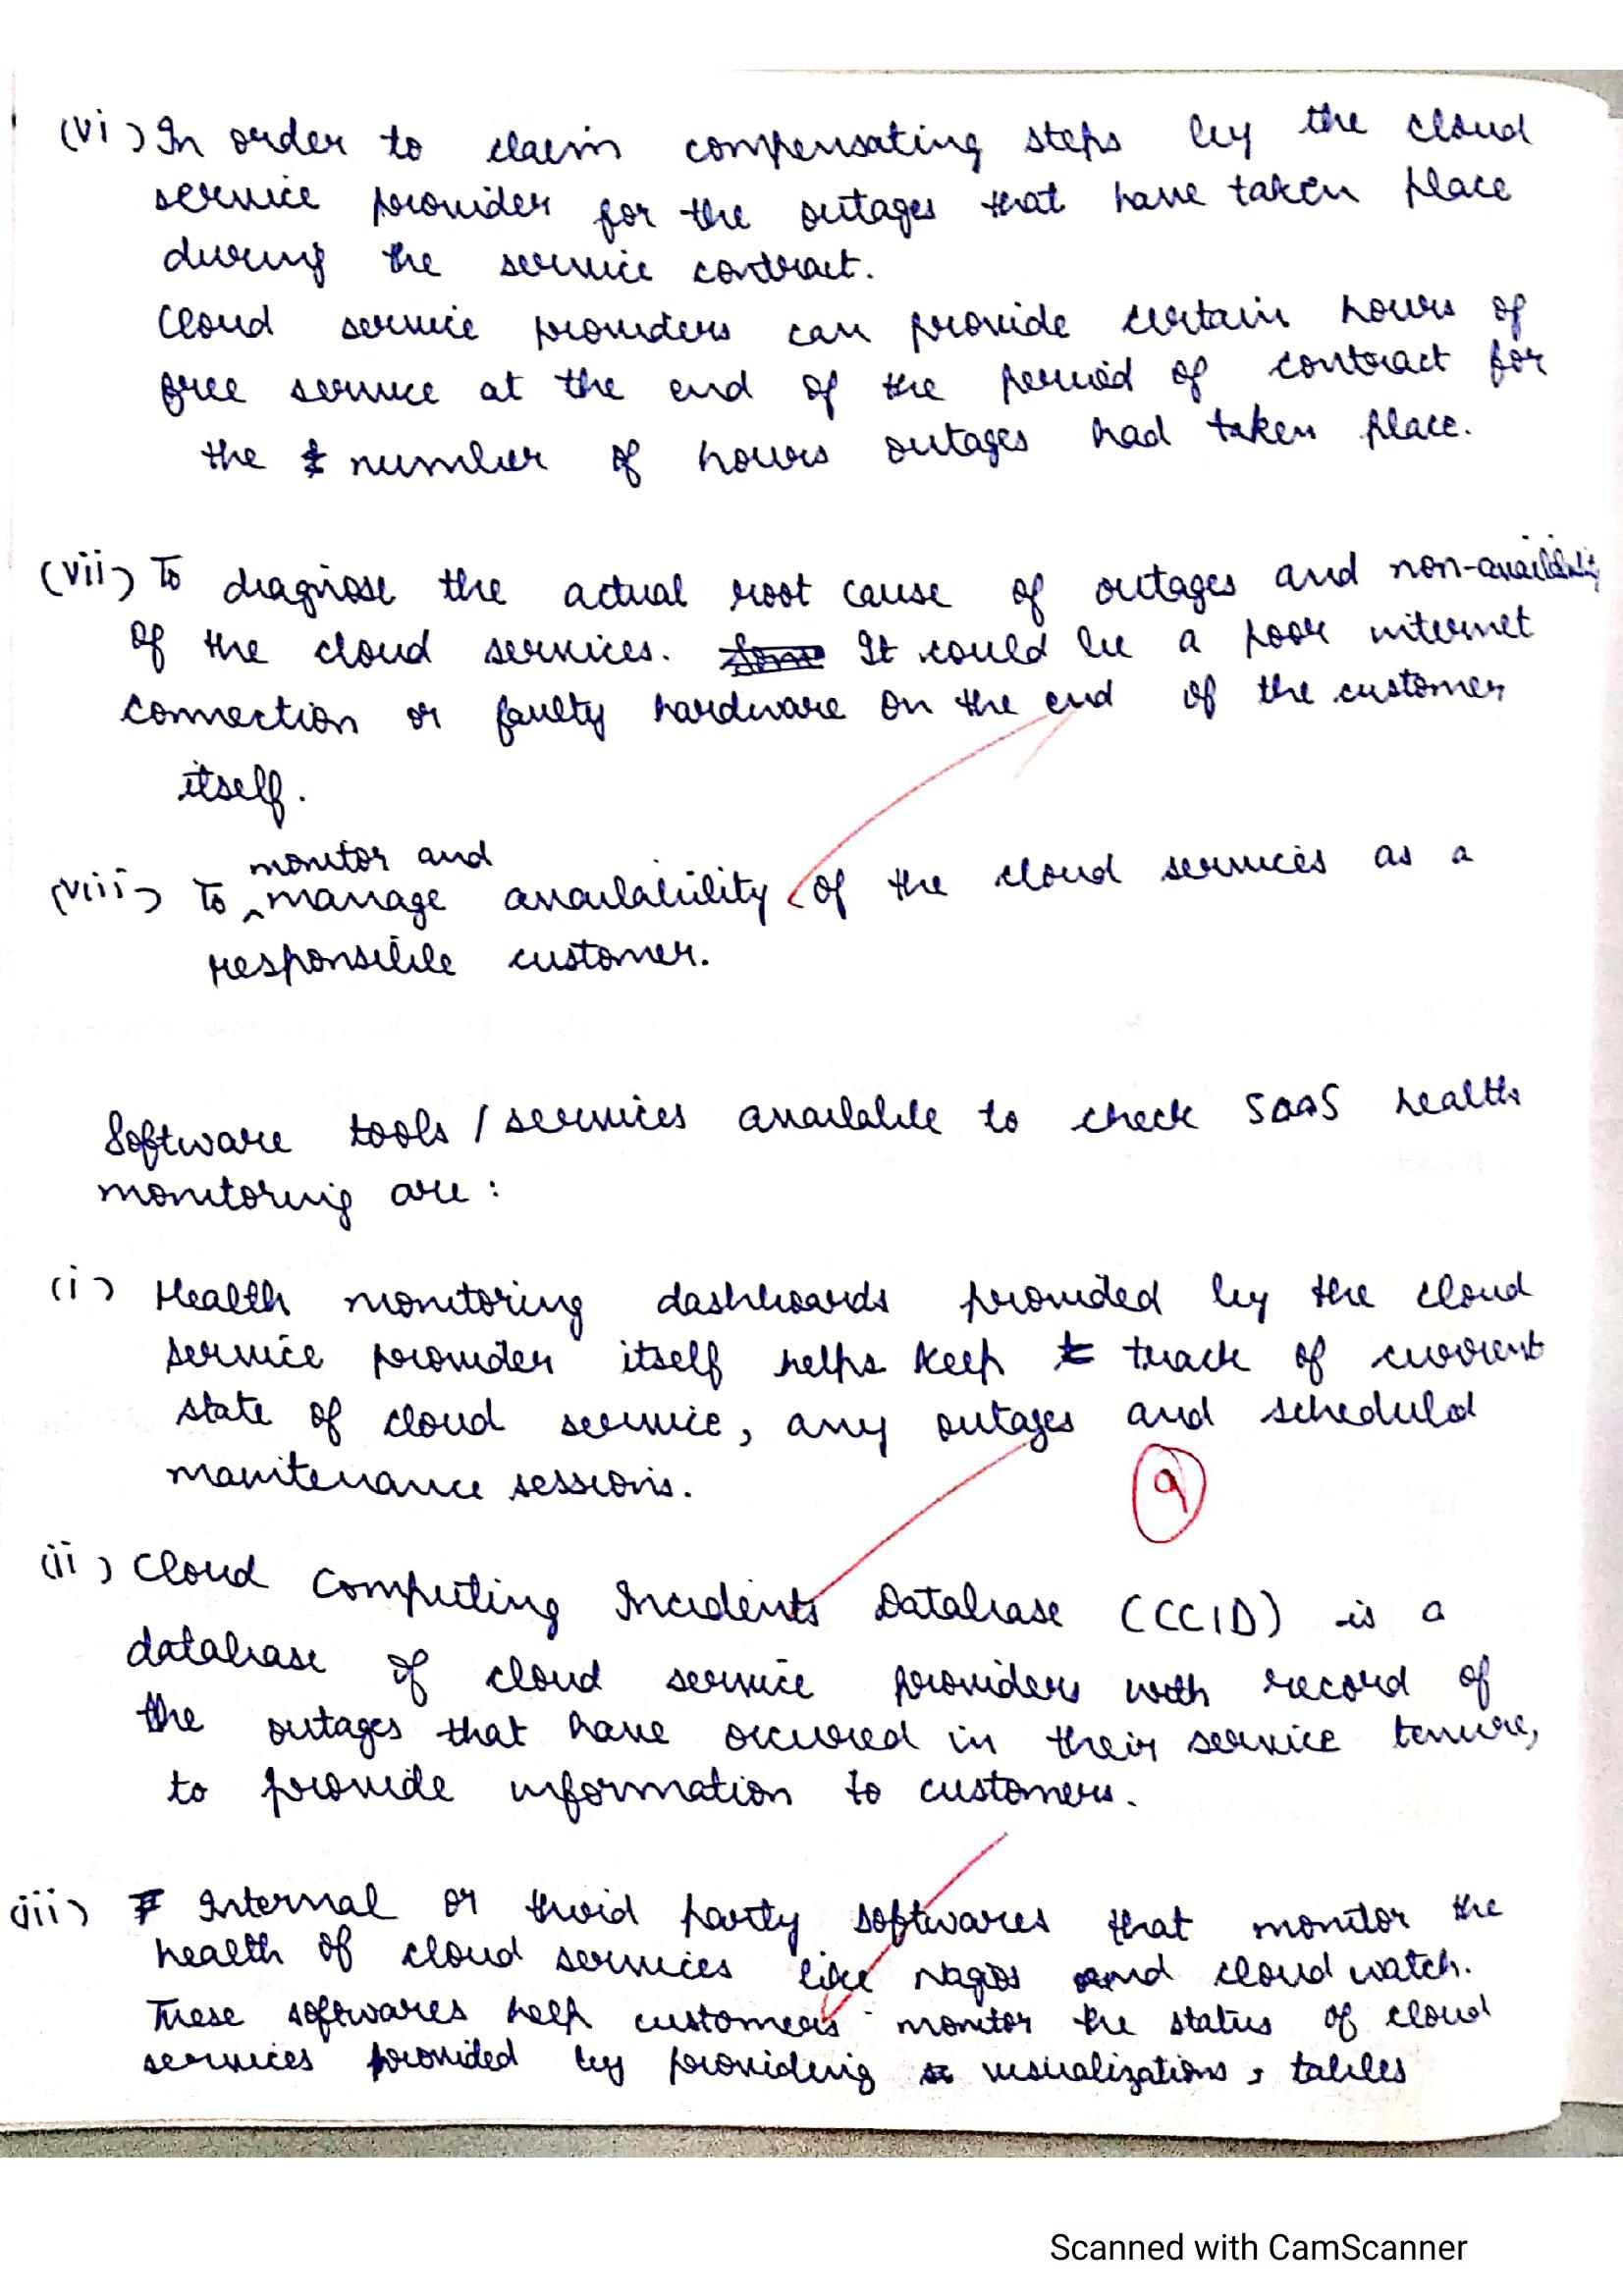 (vi) In order to claim compensating steps by the cloud
service provider for the outages that have taken place
during the service contract.
Cloud service providers can provide certain hours of
free service at the end of the period of contract for
the number of hours outages had taken place.
(vii) To diagnose the actual root cause of outages and non-availability
of the cloud services. It could be a poor internet
connection or faulty hardware on the end of the customer
itself.
monitor and
(viii) To ^ manage availability of the cloud services as a
responsible customer.
Software tools / services available to check SaaS health
monitoring are :
(i) Health monitoring dashboards provided by the cloud
service provider itself helps keep track of current
state of cloud service, any outages and scheduled
maintenance sessions.
9
(ii) Cloud Computing Incidents Database (CCID) is a
database of cloud service providers with record of
the outages that have occured in their service tenure,
to provide information to customers.
(iii) Internal or third party softwares that monitor the
health of cloud services like Nagios and cloud watch.
These softwares help customers monitor the status of cloud
services provided by providing visualizations, tables
Scanned with CamScanner